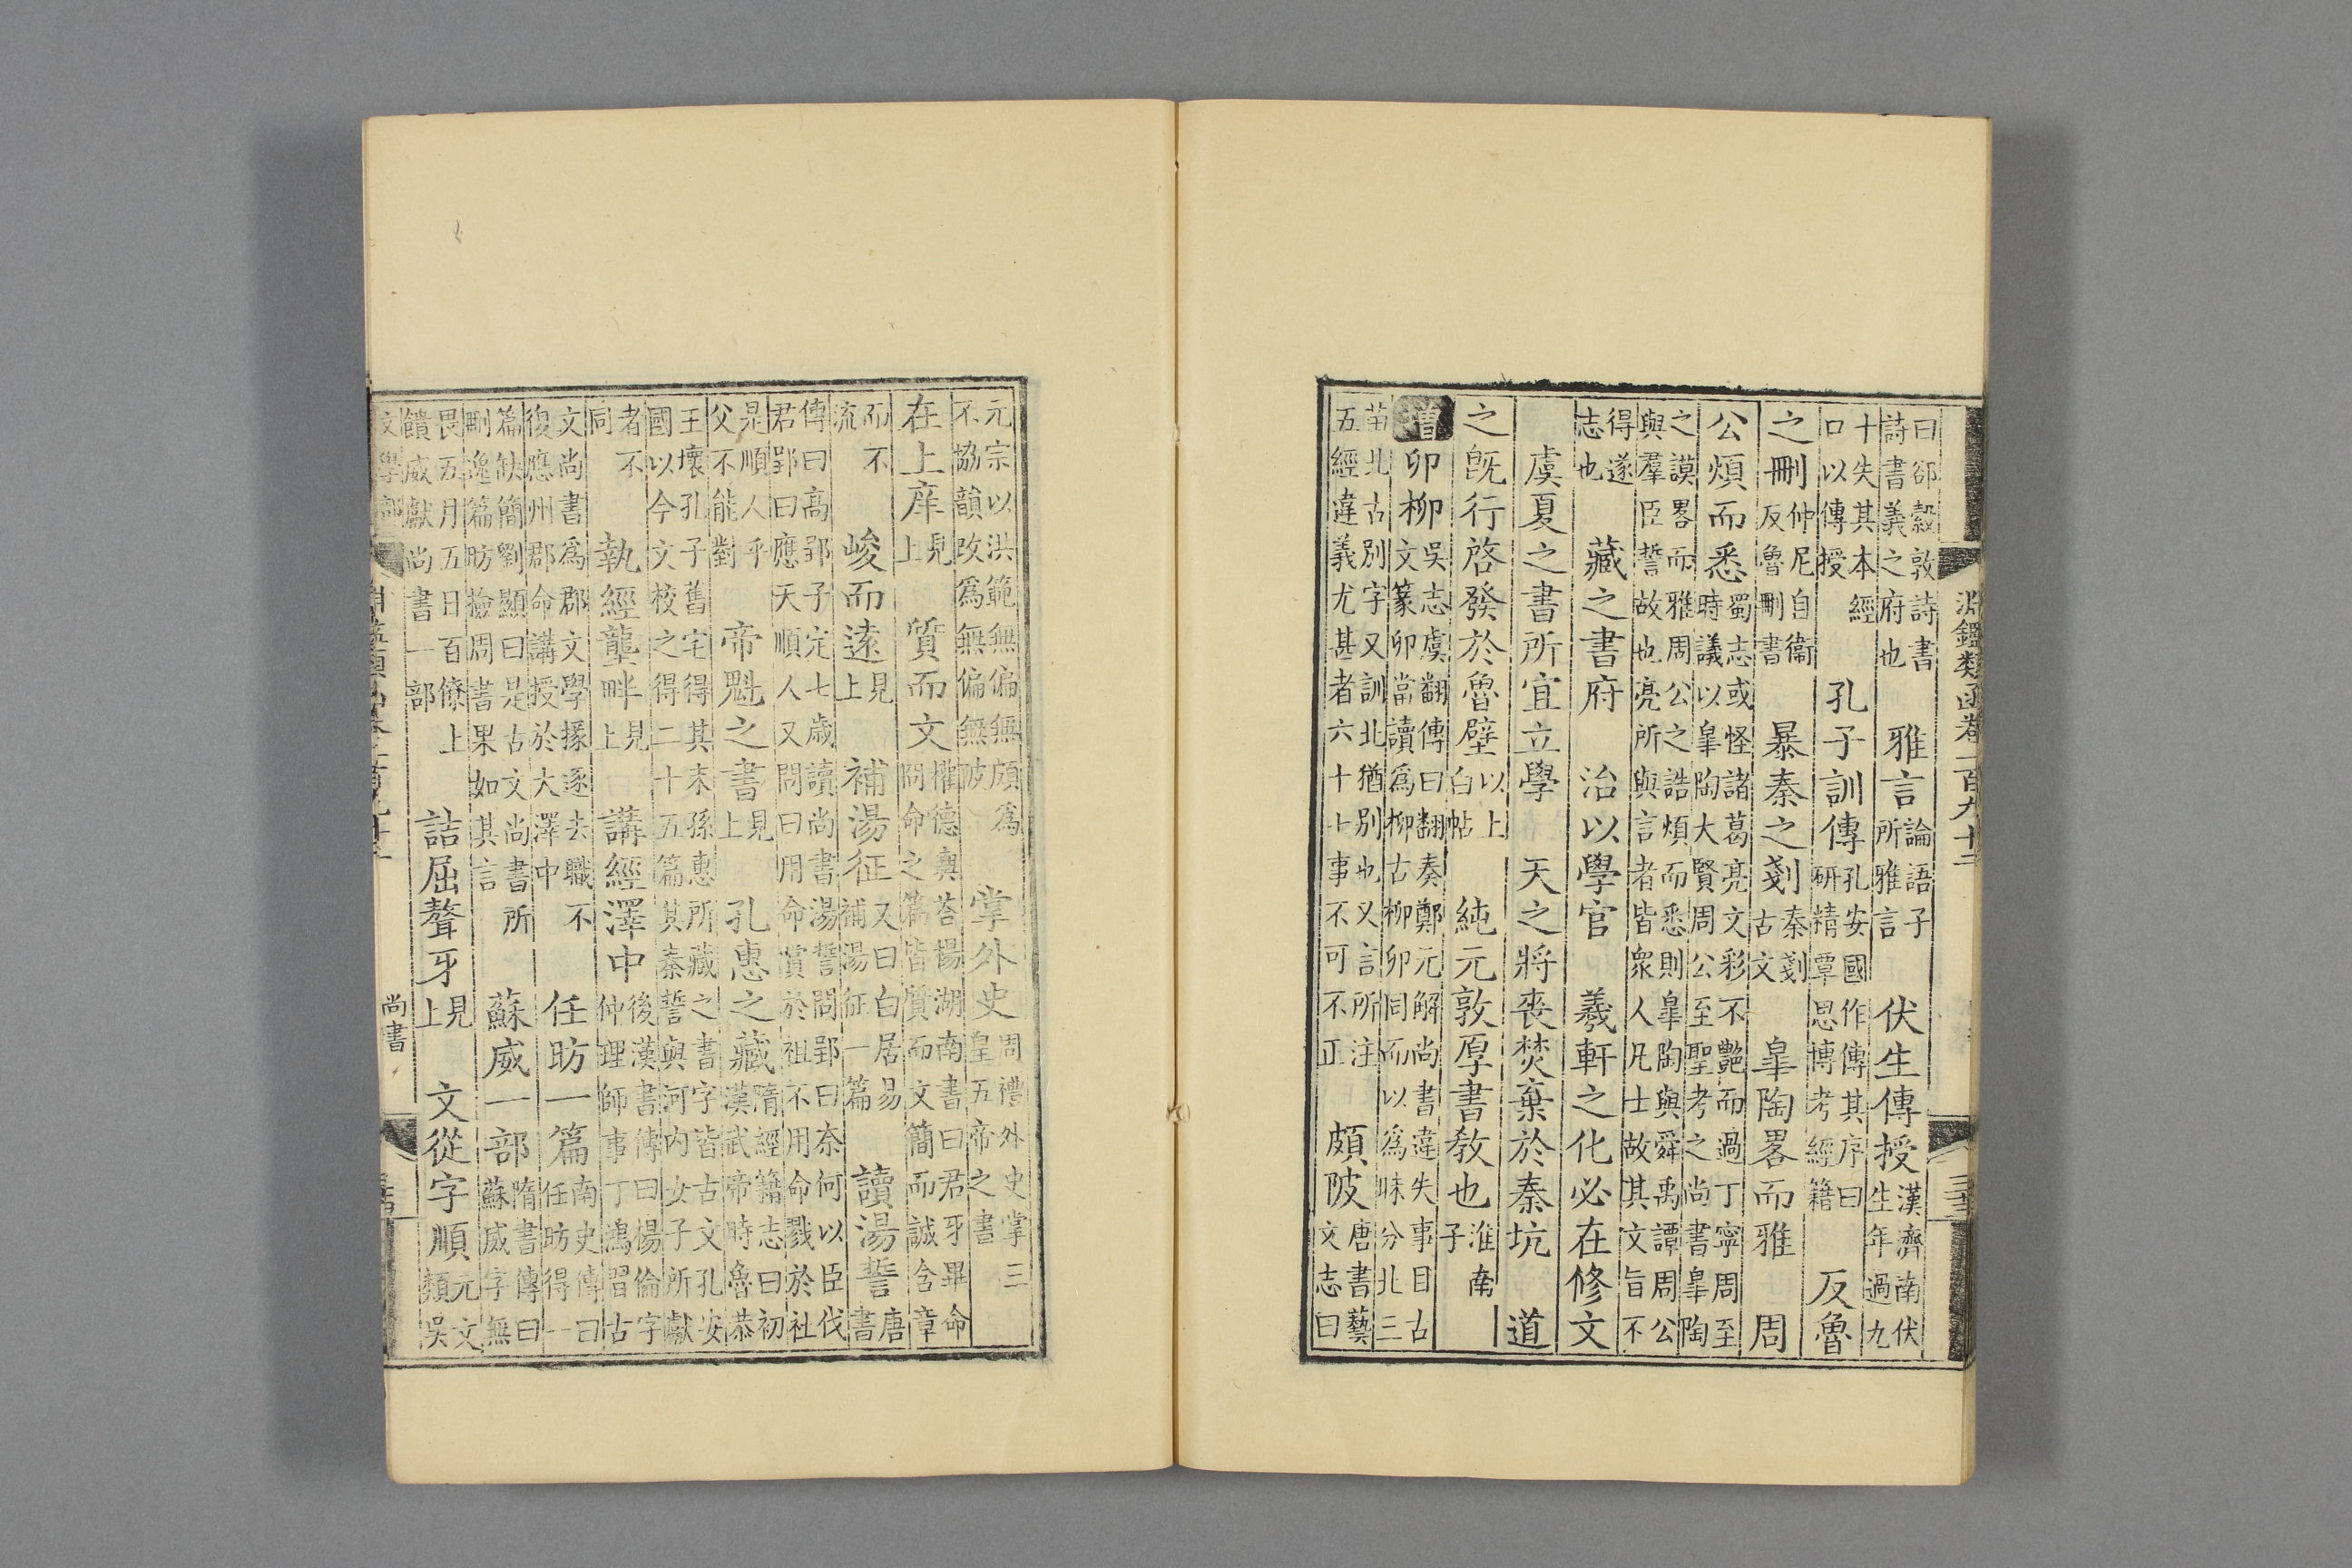 淵鑑類函卷一百九十二
曰郤縠敦詩書
詩書義之府也
雅言
論語子
所雅言
伏生傳授
漢濟南伏
生年過九
十失其本經
口以傳授
孔子訓傳
孔安國作傳其序曰
研精覃思博考經籍
反魯
之刪
仲尼自衞
反魯刪書
暴秦之剗
秦剗
古文
皐陶畧而雅
周
公煩而悉
蜀志或怪諸葛亮文彩不艷而過丁寧周至
時議以皐陶大賢周公至聖考之尚書皐陶
之謨畧而雅周公之誥煩而悉則皐陶與舜禹譚周公
與羣臣誓故也亮所與言者皆衆人凡士故其文旨不
得遂
志也
藏之書府
治以學官
羲軒之化必在修文
虞夏之書所宜立學
天之將喪焚棄於秦坑
道
之旣行啓發於魯壁
以上
白帖
純元敦厚書敎也
淮南
子
增
卯柳
吳志虞翻傳曰翻奏鄭元解尚書違失事目古
文篆卯當讀爲柳古柳卯同而以爲昧分北三
苗北古別字又訓北猶別也又言所注
五經違義尤甚者六十七事不可不正
頗陂
唐書藝
文志曰
元宗以洪範無偏無頗爲
不協韻改爲無偏無陂
掌外史
周禮外史掌三
皇五帝之書
在上庠
見
上
質而文
權德輿荅楊湖南書曰君牙畢命
冏命之篇皆質而文簡而誠含章
而不
流
峻而遠
見
上
補湯征
又曰白居易
補湯征一篇
讀湯誓
唐
書
傳曰高郢子定七歲讀尚書湯誓問郢曰柰何以臣伐
君郢曰應天順人又問曰用命賞於祖不用命戮於社
是順人乎
父不能對
帝魁之書
見
上
孔惠之藏
隋經籍志曰初
漢武帝時魯恭
王壞孔子舊宅得其末孫惠所藏之書字皆古文孔安
國以今文校之得二十五篇其泰誓與河内女子所獻
者不
同
執經壟畔
見
上
講經澤中
後漢書傳曰楊倫字
仲理師事丁鴻習古
文尚書爲郡文學掾逐去職不
復應州郡命講授於大澤中
任昉一篇
南史傳曰
任昉得一
篇缺簡劉顯曰是古文尚書所
刪逸篇昉檢周書果如其言
蘇威一部
隋書傳曰
蘇威字無
畏五月五日百僚上
饋威獻尚書一部
詰屈聱牙
見
上
文從字順
元文
類吳
尚書